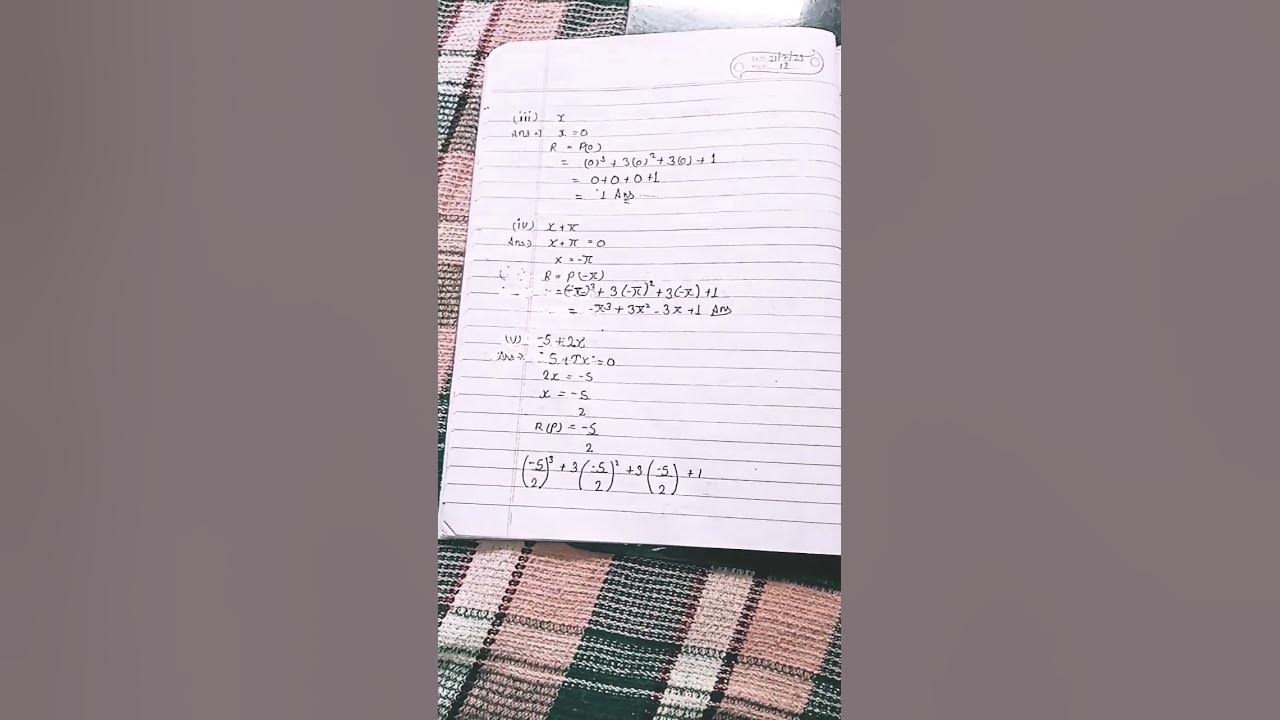 21/7/23
12
(iii) x
Ans⇒ x = 0
R = P(0)
= (0)³ + 3(0)² + 3(0) + 1
= 0+0+0+1
= 1 Ans
(iv) x+π
Ans⇒ x+π = 0
x = -π
R = P(-π)
= (-π)³ + 3(-π)² + 3(-π) + 1
= -π³ + 3π² - 3π + 1 Ans
(v) -5 + 2x
Ans⇒ 5 + 2x = 0
2x = -5
x = -5
2
R(P) = -5
2
(-5/2)³ + 3(-5/2)² + 3(-5/2) + 1